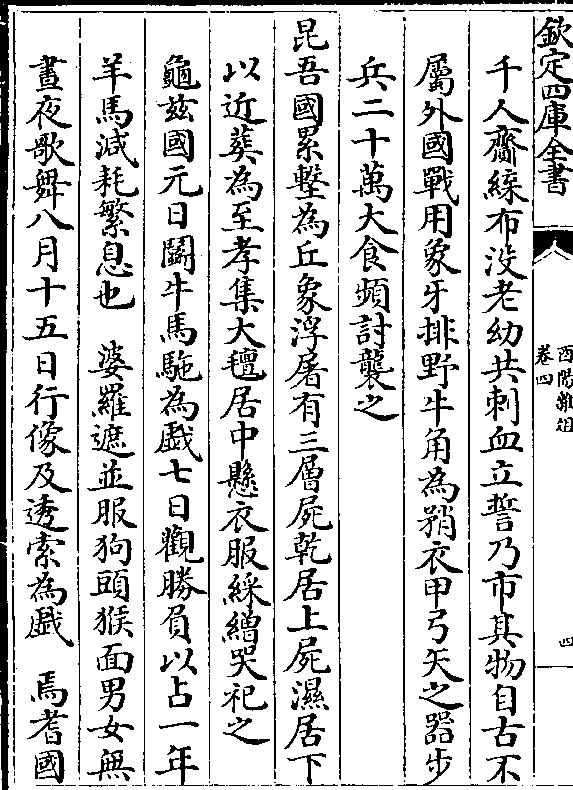 欽定四庫全書
酉陽雜俎
卷四
四
千人齎緤布没老幼共刺血立誓乃市其物自古不
屬外國戰用象牙排野牛角為矟衣甲弓矢之器步
兵二十萬大食頻討襲之
昆吾國累墼為丘象浮屠有三層屍乾居上屍濕居下
以近葬為至孝集大氊居中懸衣服綵繒哭祀之
龜兹國元日鬭牛馬駞為戲七日觀勝負以占一年
羊馬減耗繁息也　婆羅遮並服狗頭猴面男女無
晝夜歌舞八月十五日行像及透索為戲　焉耆國